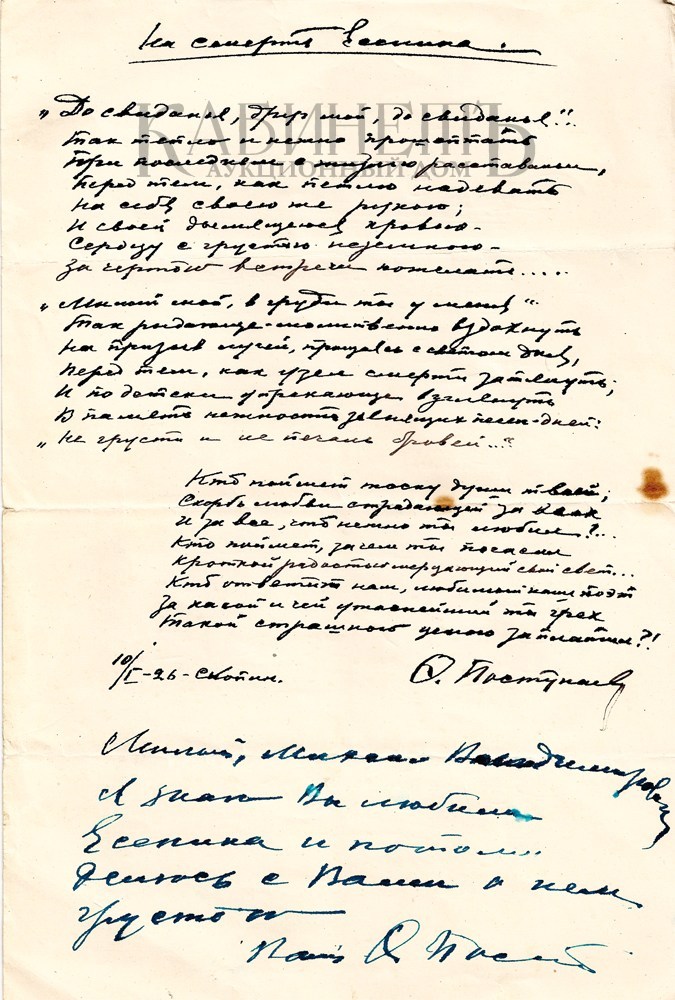 На смерть Есенина.
КАБИНЕТЪ
АУКЦИОННЫЙ ДОМ
„До свиданья, друг мой, до свиданья"!..
Так тепло и нежно прошептать
При последнем с жизнью расставаньи,
Перед тем, как петлю надевать
На себя своею же рукою;
И своей дымящеюся кровью-
Сердцу с грустью неземною-
За чертой встречи пожелать.....
„Милый мой, в груди ты у меня"
Так рыдающе-молитвенно вздохнуть
На призыв лучей, прощаясь с светом дня,
Перед тем, как узел смерти затянуть;
И по детски упрекающе взглянуть
В память нежности звенящих песен-дней:
„Не грусти и не печаль бровей..."
Кто поймет тоску души твоей,
Скорбь любви страдающей за
И за все, что нежно ты любил?...
Кто поймет, зачем ты погасил
Кроткой радостью мерцающий свой свет...
Кто ответит нам, любимый наш поэт
За какой и чей ужаснейший ты грех
Такой страшною ценою заплатил?!
10/I-26-Скопин. Ф. Поступаев
Милый, Михаил Владимирович
Я знаю Вы любили
Есенина и потому
делюсь с Вами о нем
грустью
Ваш Ф Пост